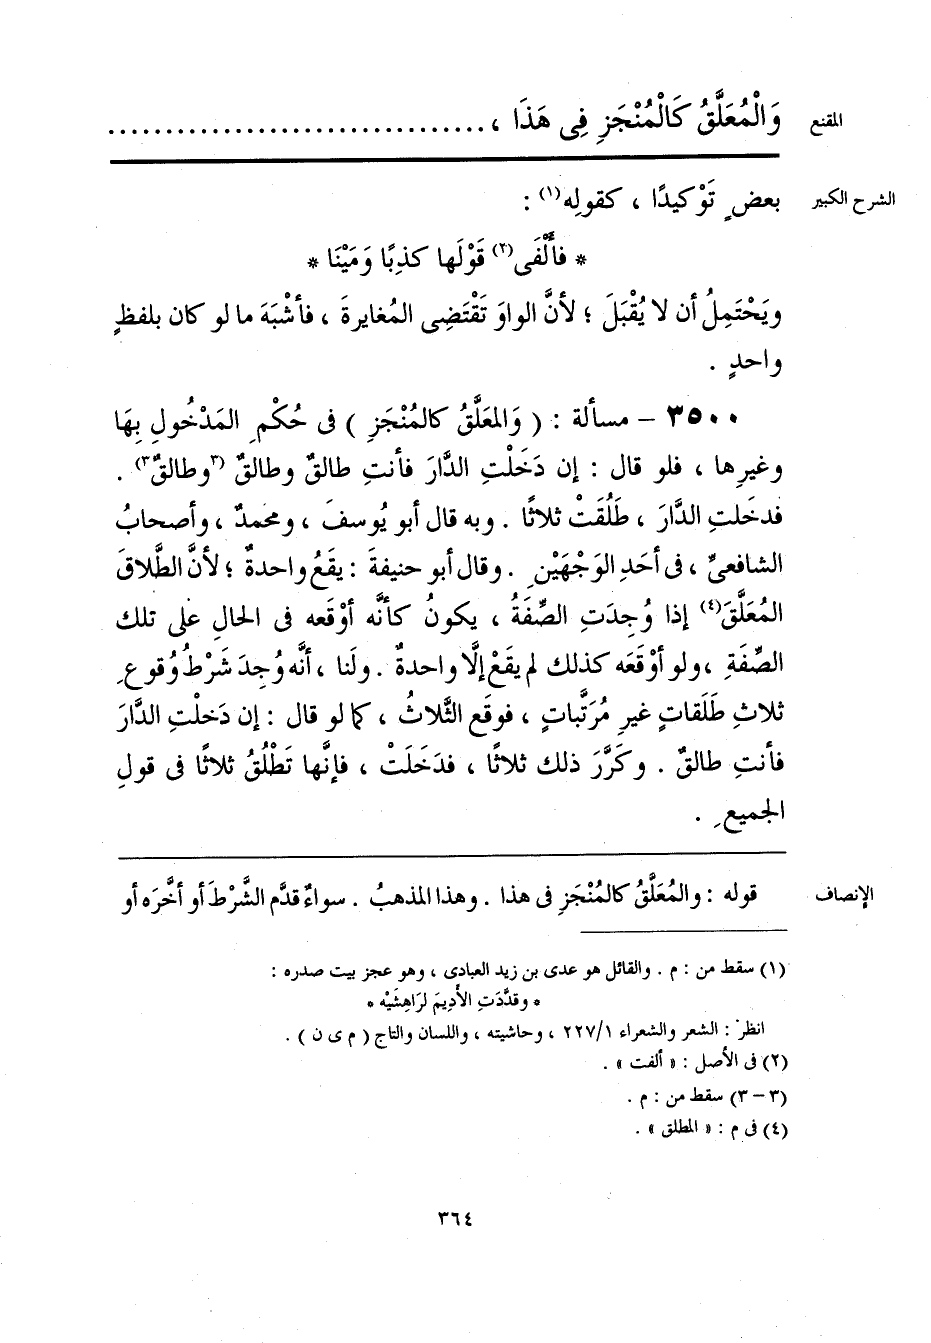 المقنع
وَالْمُعَلَّقُ كَالْمُنْجَزِ فِى هَذَا ، ................................
الشرح الكبير
بعضٍ تَوْكيدًا ، كقولِه(١) :
* فأَلْفَى(٢) قَوْلَها كذبًا وَمَيْنَا *
ويَحْتَمِلُ أن لا يُقْبَلَ ؛ لأنَّ الواوَ تَقْتَضِى المُغايرةَ ، فأشْبَهَ ما لو كان بلفظٍ
واحدٍ .
٣٥٠٠ – مسألة : ( وَالمعَلَّقُ كالمُنْجَزِ ) فى حُكْمِ المَدْخُولِ بِهَا
وغيرِها ، فلو قال : إن دَخَلْتِ الدَّارَ فأنتِ طالقٌ وطالقٌ (٣وطالقٌ٣) .
فدخَلتِ الدَّارَ ، طَلُقَتْ ثلاثًا . وبه قال أبو يُوسفَ ، ومحمدٌ ، وأصحابُ
الشافعىِّ ، فى أحَدِ الوَجْهَيْنِ . وقال أبو حنيفةَ : يقَعُ واحدةٌ ؛ لأنَّ الطَّلاقَ
المُعَلَّقَ(٤) إذا وُجِدَتِ الصِّفَةُ ، يكونُ كأنَّه أوْقَعه فى الحالِ على تلك
الصِّفَةِ ، ولو أوْقَعَه كذلك لم يقَعْ إلَّا واحدةٌ . ولَنا ، أنَّه وُجِدَ شَرْطُ وُقوعِ
ثلاثِ طَلَقاتٍ غيرِ مُرَتَّباتٍ ، فوقَع الثَّلاثُ ، كما لو قال : إن دَخلْتِ الدَّارَ
فأنتِ طالقٌ . وكَرَّرَ ذلك ثلاثًا ، فدَخَلَتْ ، فإنَّها تَطْلُقُ ثلاثًا فى قولِ
الجميعِ .
الإنصاف
قوله : والمُعَلَّقُ كالمُنْجَزِ فى هذا . وهذا المذهبُ . سواءٌ قدَّم الشَّرْطَ أو أخَّرَه أو
(١) سقط من : م . والقائل هو عدى بن زيد العبادى ، وهو عجز بيت صدره :
* وقدَّدَتِ الأَدِيمَ لرَاهِشَيْه *
انظر : الشعر والشعراء ٢٢٧/١ ، وحاشيته ، واللسان والتاج ( م ى ن ) .
(٢) فى الأصل : « ألفت » .
(٣ – ٣) سقط من : م .
(٤) فى م : « المطلق » .
٣٦٤